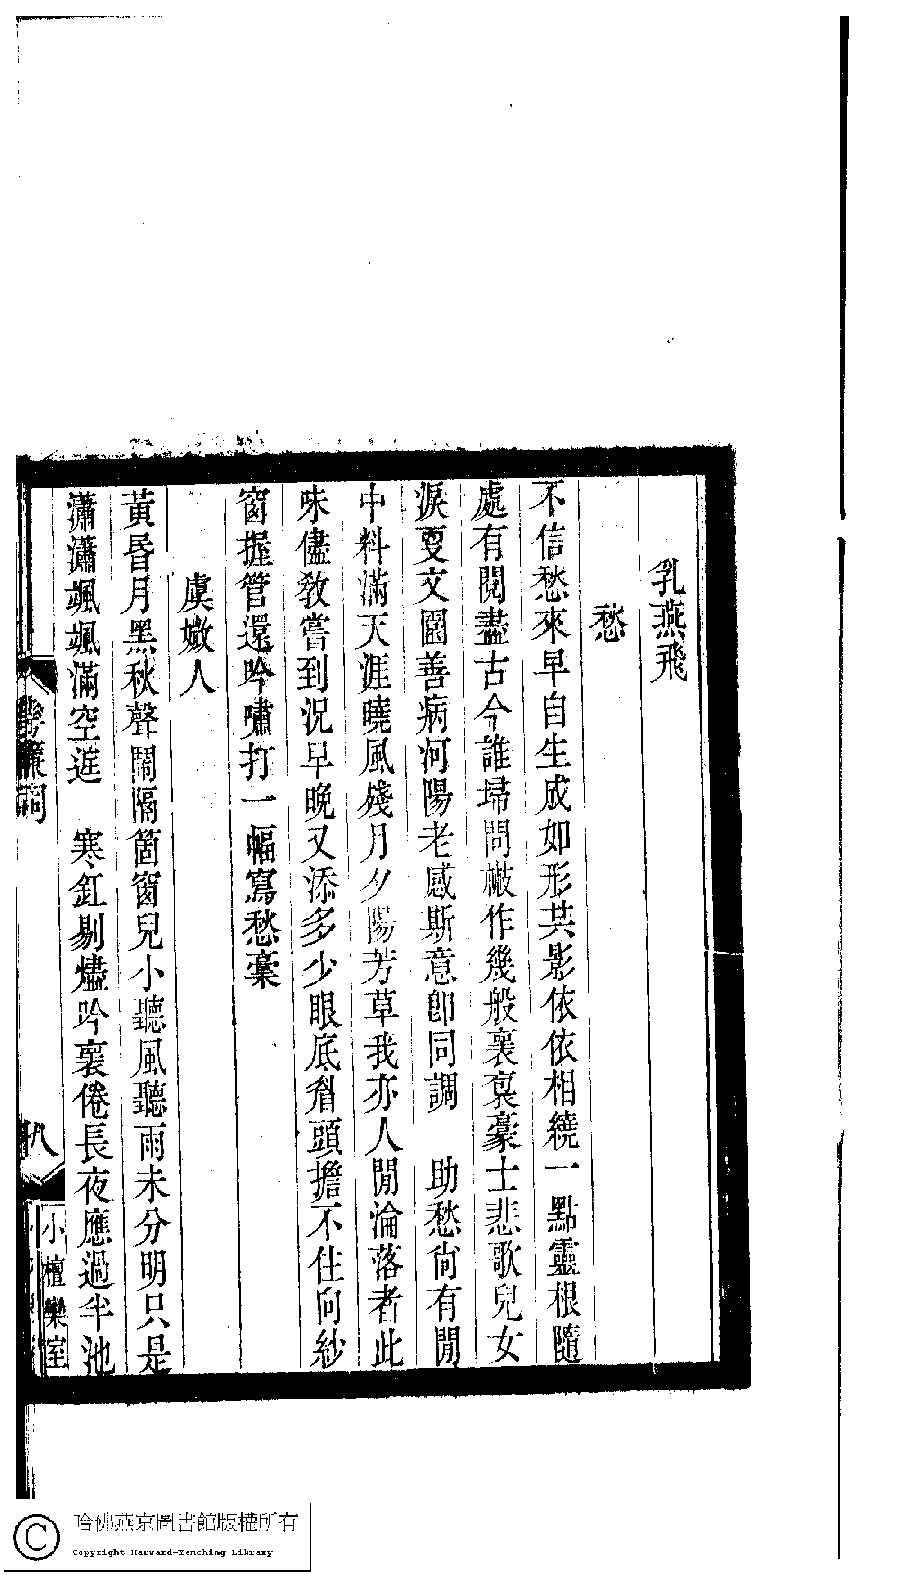 乳燕飛
愁
不信愁來早自生成如形共影依依相繞一點靈根隨
處有閱盡古今誰埽問㪚作幾般褱裒豪士悲歌兒女
淚更文園善病河陽老感斯意卽同調　助愁尙有閒
中料滿天涯曉風殘月夕陽芳草我亦人閒淪落者此
味儘敎嘗到況早晚又添多少眼底眉頭擔不住向紗
窗握管還吟嘯打一幅寫愁藁
虞媺人
黃昏月黑秋聲鬧隔箇窗兒小聽風聽雨未分明只是
瀟瀟颯颯滿空庭　寒釭剔燼吟褱倦長夜應過半池
簾詞
八
小檀欒室
哈佛燕京圖書館版權所有
Copyright Harvard-Yenching Library